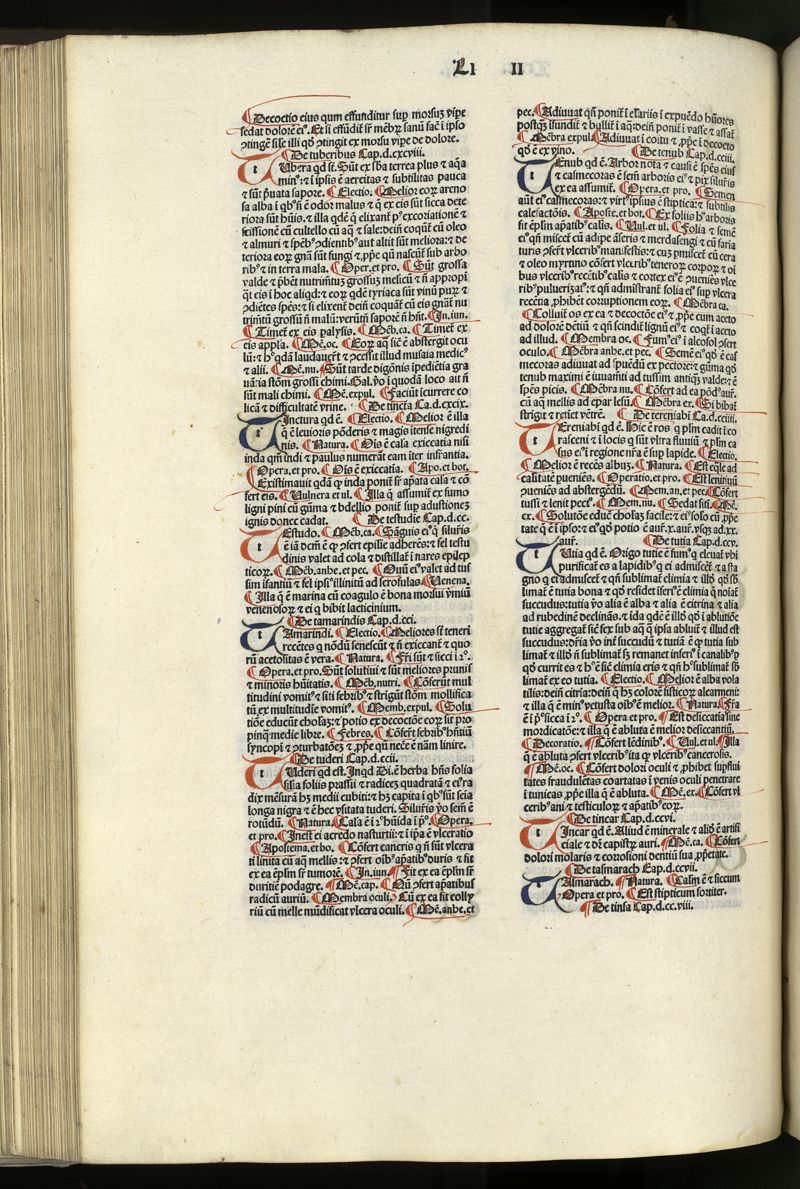 Li II
Decoctio eius qum effunditur sup morsuz vipe
sedat dolorē ei⁹. Et si effūdit̄ sr̄ mēbꝝ sanū fac̄ i ipso
ɔtingē sil̄e illi qđ ɔtingit ex morsu vipe de dolore.
¶ De tuberibus Cap.d.cxcviii.
TUbera qđ sē. Sūt ex sba terrea plus ⁊ aq̄a
min⁹: ⁊ i ipsis ē aereitas ⁊ subtilitas pauca
⁊ sūt p̄uata sapore. ¶ Electio. ¶ Melior eoꝝ areno
sa alba i qb⁹ n̄ ē odor malus ⁊ q̄ ex eis sūt sicca dete
riora sūt hūis. ⁊ illa qdē q̄ elixant̄ p⁹ excoriationē ⁊
scissionē cū cultello cū aq̄ ⁊ sale: dein̄ coqūt cū oleo
⁊ almuri ⁊ spēb⁹ ɔdientib⁹ aut aliīt sūt meliora: ⁊ de
teriora eoꝝ gn̄a sūt fungi ⁊ ꝓpe qui nascūt̄ sub arbo
rib⁹ ⁊ in terra mala. ¶ Oper.et pro. ¶ Sūt grossa
valde ⁊ p̄bēt nutrimētuz grossuz melicū ⁊ n̄ appropī
q̄t eis i hoc aliqđ: ⁊ eoꝝ qdē tyriaca sūt vinū puꝝ ⁊
ɔdiētes spēs: ⁊ si elixent̄ dein̄ coquāt̄ cū eis gn̄āt nu
trimētū grossū n̄ malū: verūtn̄ saporē n̄ hn̄t. ¶ In.iun.
¶ Timet̄ ex eis palysis. ¶ Mēb.ca. ¶ Timet̄ ex
eis applīa. ¶ Mē.oc. ¶ Eoꝝ aq̄ sic̄ ē abstergit ocu
lū: ⁊ h⁹qdā laudauer̄t ⁊ ɔcessit illud musaia medic⁹
⁊ alii. ¶ Mē.nu. ¶ Sūt tarde digōnis ipediētia gra
uātia stōm grossi chimi. Gal.ỽo i quodā loco ait n̄
sūt mali chimi. ¶ Mē.expul. ¶ Faciūt icurrere co
licā ⁊ difficultatē vrine. ¶ De tinctā Ca.d.cxcix.
TInctura qđ ē. ¶ Electio. ¶ Melior ē illa
q̄ ē leuioris pōderis ⁊ magis itense nigredi
nis. ¶ Natura. ¶ Ois ē cal̄a exiccatia nisi
inda qm̄ indi ⁊ paulus numerāt eam iter infr̄antia.
¶ Opera.et pro. ¶ Ois ē exiccatia. ¶ Apo.et bot.
¶ Existimauit qdā qp inda ponit̄ sr̄ apata cal̄a ⁊ cō
fert eis. ¶ Vulnera et ul. ¶ Illa q̄ assumit̄ ex fumo
ligni pini cū gūma ⁊ bdellio ponit̄ sup adustionez
ignis donec cadat. ¶ De testudīe Cap.d.cc.
TEstudo. ¶ Mēb.ca. ¶ Sāguis ei⁹ q̄ siluris
ē iā dcm̄ ē qp ɔfert epilīie adherēs: ⁊ fel testu
dinis valet ad cola ⁊ distillat̄ i nares epilep
ticoꝝ. ¶ Mēb.anhe.et pec. ¶ Ouū ei⁹ valet ad tus
sim ifantiū ⁊ fel ipsi⁹ illinitū ad scrofulas ¶ Venena.
¶ Illa q̄ ē marina cū coagulo ē bona morsui ỽmiū
venenosoꝝ ⁊ ei q̄ bibit lacticinium.
¶ De tamarindis Cap.d.cci.
TAmarindi. ¶ Electio. ¶ Meliores sr̄ teneri
recētes q̄ nōdū senescūt ⁊ n̄ exiccant̄ ⁊ quo
rū acetositas ē vera. ¶ Natura. ¶ Fr̄i sūt ⁊ sicci i 2⁰.
¶ Opera.et pro. Sūt solutiui ⁊ sūt meliores prunis
⁊ minoris hūitatis. ¶ Mēb.nutri. ¶ Cōferūt mul
titudini vomit⁹ ⁊ siti febrib⁹ ⁊ strigūt stōm mollifica
tū, ex multitudie vomit⁹. ¶ Memb.expul. ¶ Solu
tiōe educūt cholaz: ⁊ potio ex decoctōe eoꝝ sit pro
pinq̄ medie libre. ¶ Febres. ¶ Cōfert̄ febrib⁹ hn̄tiū
syncopi ⁊ ɔturbatōez ⁊ ꝓpe qn̄ nēce ē nām linire.
¶ De tuderi Cap.d.ccii.
TUderi qđ est. Inqđ Di.ē herba hn̄s folia
silia foliis prassii ⁊ radicez quadratā ⁊ ei⁹ra
dix mēsurā hz medii cubiti: ⁊ hz capita i qb⁹ sūt scia
longa nigra ⁊ ē hec vsitata tuderi. Silurīs ỽo sem̄ ē
rotūdū. ¶ Natura. ¶ Cal̄a ē i 2⁰ hūida i p⁰. ¶ Opera.
et pro. ¶ Inest ei acredo nasturtii: ⁊ i ipā ē vlceratio
¶ Apostema.et bo. ¶ Cōfert cancris q̄ n̄ sūt vlcera
ti linita cū aq̄ mellis: ⁊ ɔfert oib⁹ apatib⁹ duris ⁊ sit
ex ea ēpl̄m sr̄ tumorē. ¶ In.iun. ¶ Fit ex ea ēpl̄m sr̄
duritiē podagre. ¶ Mē.cap. ¶ Nū ɔfert apatibus
radicū auriū. ¶ Membra oculi. ¶ Cū ex ea sit colly
riū cū melle mūdificat vlcera oculi. ¶ Mē.anhe.et
pec. ¶ Adiuuat qn̄ ponit̄ i el̄ariis i expuēdo hūores
postqz ifundit̄ ⁊ bullit̄ i aq̄: dein̄ ponit̄ i vasse ⁊ assat̄
¶ Mēbra expul. ¶ Adiuuat i coitu ⁊ ꝓpe i decocto
qđ ē ex vino. ¶ De tenub Cap.d.cciii.
TEnub qđ ē. Arbor nota ⁊ cauls ē spēs eius
⁊ casmecoras ē sem̄ arboris ei⁹ ⁊ pix siluris
ex ea assumit̄. ¶ Opera.et pro. ¶ Semen
aut ei⁹ casmecoras: ⁊ virt⁹ ipsius ē stiptica: ⁊ subtilis
calefactōis. ¶ Aposte.et bot. ¶ Ex foliis h⁹ arboris
sit ēpl̄m apatib⁹ calis. ¶ Vul.et ul. ¶ Folia ⁊ semē
ei⁹ qn̄ miscet̄ cū adipe āseris ⁊ merdasengi ⁊ cū faria
turis ɔfert vlcerib⁹ manifestis: ⁊ cuz p̄miscet̄ cū cera
⁊ oleo myrtino cōfert vlcerib⁹ tenerioꝝ corpoꝝ ⁊ oi
bus vlcerib⁹ recētib⁹ calis ⁊ cortex ei⁹ ē ɔueniēs vlce
rib⁹ puluerizat⁹: ⁊ qn̄ admistrant̄ folia ei⁹ sup vlcera
recētia ꝓhibēt corruptionem eoꝝ. ¶ Mēbra ca.
¶ Colluit̄ os ex ea ⁊ decoctōe ei⁹ ⁊ ꝓpe cum aceto
ad dolorē dētiū ⁊ qn̄ scindit̄ lignū ei⁹ ⁊ coqt̄ i aceto
ad illud. ¶ Membra oc. ¶ Fum⁹ ei⁹ i alcosol ɔfert
oculo. ¶ Mēbra anhe.et pec. ¶ Semē ei⁹ qđ ē cas
mecoras adiuuat ad spuēdū ex pectore: ⁊ gūma qđ
tenub maximi ē iuuam̄ti ad tussim antiqz valde: ⁊ ē
spēs picis. ¶ Mēbra nu. ¶ Cōfert ad ea pōd⁹ aur̄.
cū aq̄ mellis ad epar lesū. ¶ Mēbra ex. ¶ Si bibat̄
strigit ⁊ retiet vētrē. ¶ De tereniabi Ca.d.cciiii.
TEreniabi qđ ē. Hic ē ros q̄ plm̄ cadit i co
rasceni ⁊ i locis q̄ sūt vltra fluuiū ⁊ plm̄ ca
sus ei⁹ i regione nr̄a ē sup lapide. ¶ Electio.
¶ Melior ē recēs albuz. ¶ Natura. ¶ Est eq̄le ad
caliditatē ꝓueniēs. ¶ Operatio.et pro. ¶ Est lenitiuū
ɔueniēs ad abstergēdū. ¶ Mem.an.et pec. ¶ Cōfert
tussi ⁊ lenit pect⁹. ¶ Mem.nu. ¶ Sedat sitī. ¶ Mē.
ex. ¶ Solutōe educit cholaz facile: ⁊ ei⁹ solo cū ꝓpe
tate q̄ ē i ipso: ⁊ ei⁹ qđ potio ē aur̄.x. aur̄. vsqz ad.xx.
aur̄. ¶ De tutia Cap.d.ccv.
TUtia qđ ē. Origo tutie ē fum⁹ q̄ eleuat̄ vbi
purificat̄ es a lapidib⁹ q̄ ei admiscet̄ ⁊ a sta
gno q̄ ei admiscet̄ ⁊ qn̄ sublimat̄ climia ⁊ illđ qđ sb
limat̄ ē tutia bona ⁊ qđ residet iferi⁹ ē climia q̄ noīat̄
succudus: tutia ỽo alia ē alba ⁊ alia ē citrina ⁊ alia
ad rubedinē declinās. ⁊ ida qdē ē illđ qđ i ablutiōe
tutie aggregat̄ sic̄ sex sub aq̄ q̄ ipsa abluit̄ ⁊ illud est
succudus: dr̄ia ỽo iter succudū ⁊ tutiā ē qp tutia sub
limat̄ ⁊ illđ n̄ sublimat̄ sz remanet inferi⁹ i canalib⁹ p
qđ currit es ⁊ h⁹ ē sic̄ climia eris ⁊ qn̄ h⁹ sublimat̄ sb
limat̄ ex eo tutia. ¶ Electio. ¶ Melior ē alba vola
tilis: dein̄ citria: dein̄ q̄ hz colorē fisticoꝝ alcarmeni:
⁊ illa q̄ ē min⁹ vetusta oib⁹ ē melior. ¶ Natura. ¶ Fr̄a
ē i p⁰: sicca i 2⁰. ¶ Opera et pro. ¶ Est desiccatia sine
mordicatōe: ⁊ illa q̄ ē abluta ē melior desiccantiū.
¶ Decoratio. ¶ Cōfert fēdinib⁹. ¶ Vul.et ul. ¶ Illa
q̄ ē abluta ɔfert vlcerib⁹ ita qp vlcerib⁹ cancerosis.
¶ Mē.oc. ¶ Cōfert dolori oculi ⁊ ꝓhibet supflui
tates fraudulētas coartatas i venis oculi penetrare
i tunicas ꝓpe illa q̄ ē abluta. ¶ Mē.ex. ¶ Cōfert vl
cerib⁹ ani ⁊ testiculoꝝ ⁊ apatib⁹ eoꝝ.
¶ De tincar Cap.d.ccvi.
TIncar qđ ē. Aliud ē minerale ⁊ aliđ ē artifi
ciale ⁊ dr̄ capistrz auri. ¶ Mē.ca. ¶ Cōfert
dolori molaris ⁊ corrosioni dentiū sua ꝓpetate.
¶ De tasmarach Cap.d.ccvii.
TAsmarach. ¶ Natura. ¶ Calm̄ ē ⁊ siccum
¶ Opera et pro. ¶ Est stipticum fortiter.
¶ De tinsa Cap.d.cc.viii.